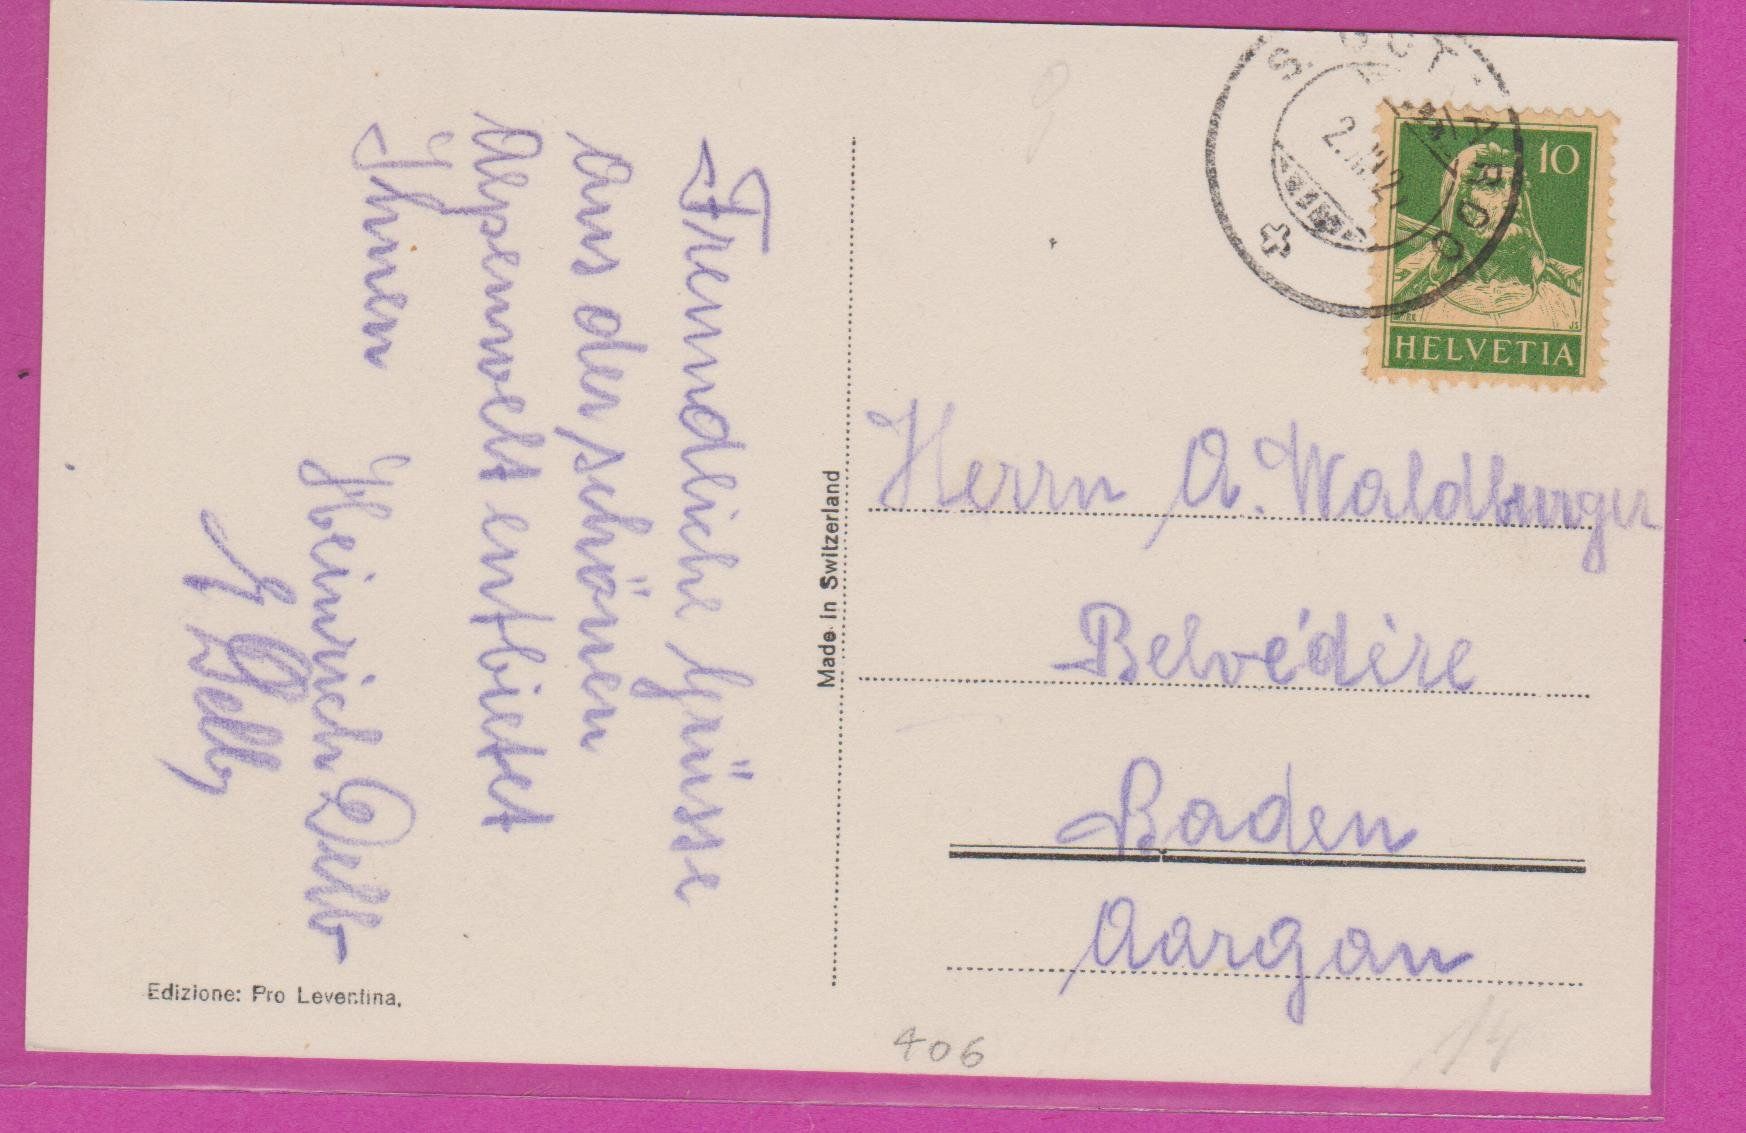 Freundliche Grüsse
aus der schönen
Alpenwelt entbietet
Ihnen
Heinrich
Made in Switzerland
Edizione: Pro Leventina.
S. GOTTARDO
10
HELVETIA
Herrn A. Waldburger
Belvédère
Baden
Aargau
406
14